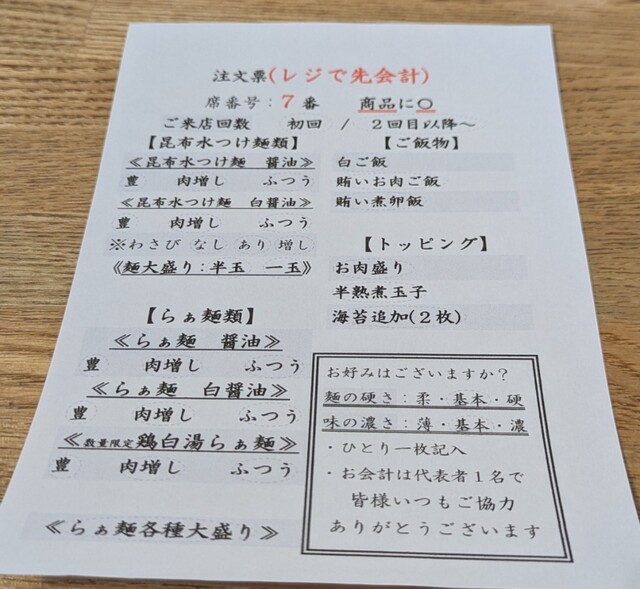 注文票(レジで先会計)
席番号：7番 商品に○
ご来店回数 初回 / 2回目以降～
【昆布水つけ麺類】
≪昆布水つけ麺 醤油≫
豊 肉増し ふつう
≪昆布水つけ麺 白醤油≫
豊 肉増し ふつう
※わさび なし あり 増し
≪麺大盛り：半玉 一玉≫
【らぁ麺類】
≪らぁ麺 醤油≫
豊 肉増し ふつう
≪らぁ麺 白醤油≫
豊 肉増し ふつう
≪数量限定鶏白湯らぁ麺≫
豊 肉増し ふつう
≪らぁ麺各種大盛り≫
【ご飯物】
白ご飯
賄いお肉ご飯
賄い煮卵飯
【トッピング】
お肉盛り
半熟煮玉子
海苔追加(2枚)
お好みはございますか？
麺の硬さ：柔・基本・硬
味の濃さ：薄・基本・濃
・ひとり一枚記入
・お会計は代表者1名で
皆様いつもご協力
ありがとうございます